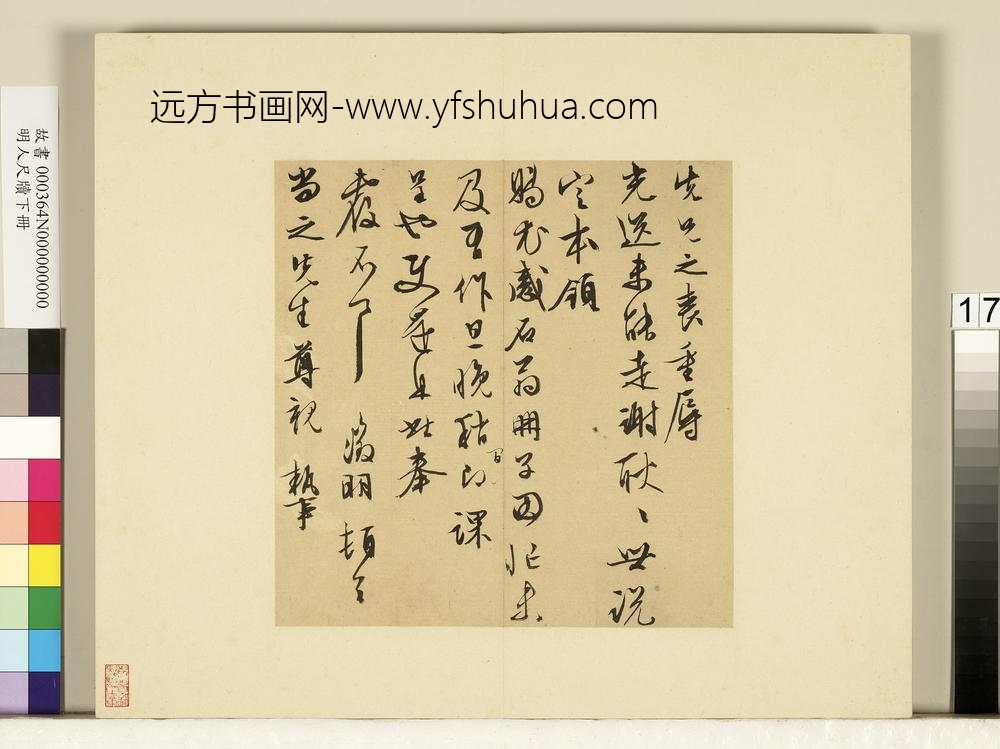 远方书画网-www.yfshuhua.com
故書 000364N000000000
明人尺牘下冊
17
先兄之喪重辱
光送未能走謝耿〻世說
定本領
賜尤感石翁冊子因忙未
及再作旦晚稍間即課
呈也使還且此奉
覆不一 徵明頓首
尚之先生尊親 執事